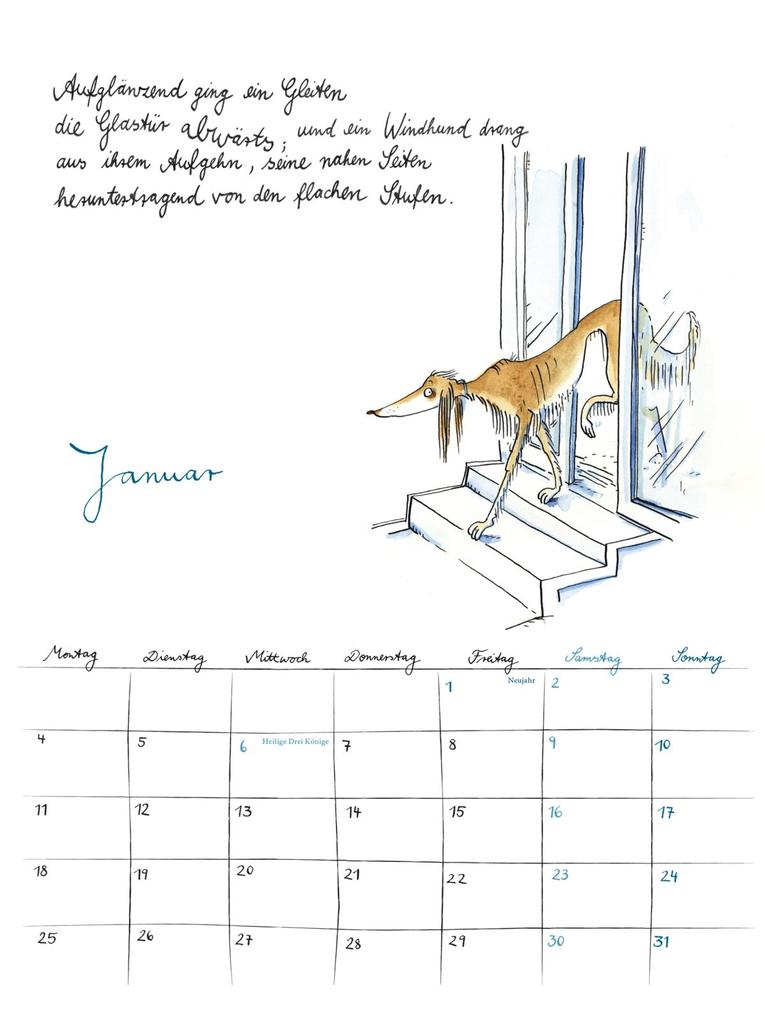 Aufglänzend ging ein Gleiten
die Glastür abwärts; und ein Windhund drang
aus ihrem Aufgehn, seine nahen Seiten
heruntertragend von den flachen Stufen.
Januar
Montag Dienstag Mittwoch Donnerstag Freitag Samstag Sonntag
1 Neujahr 2 3
4 5 6 Heilige Drei Könige 7 8 9 10
11 12 13 14 15 16 17
18 19 20 21 22 23 24
25 26 27 28 29 30 31